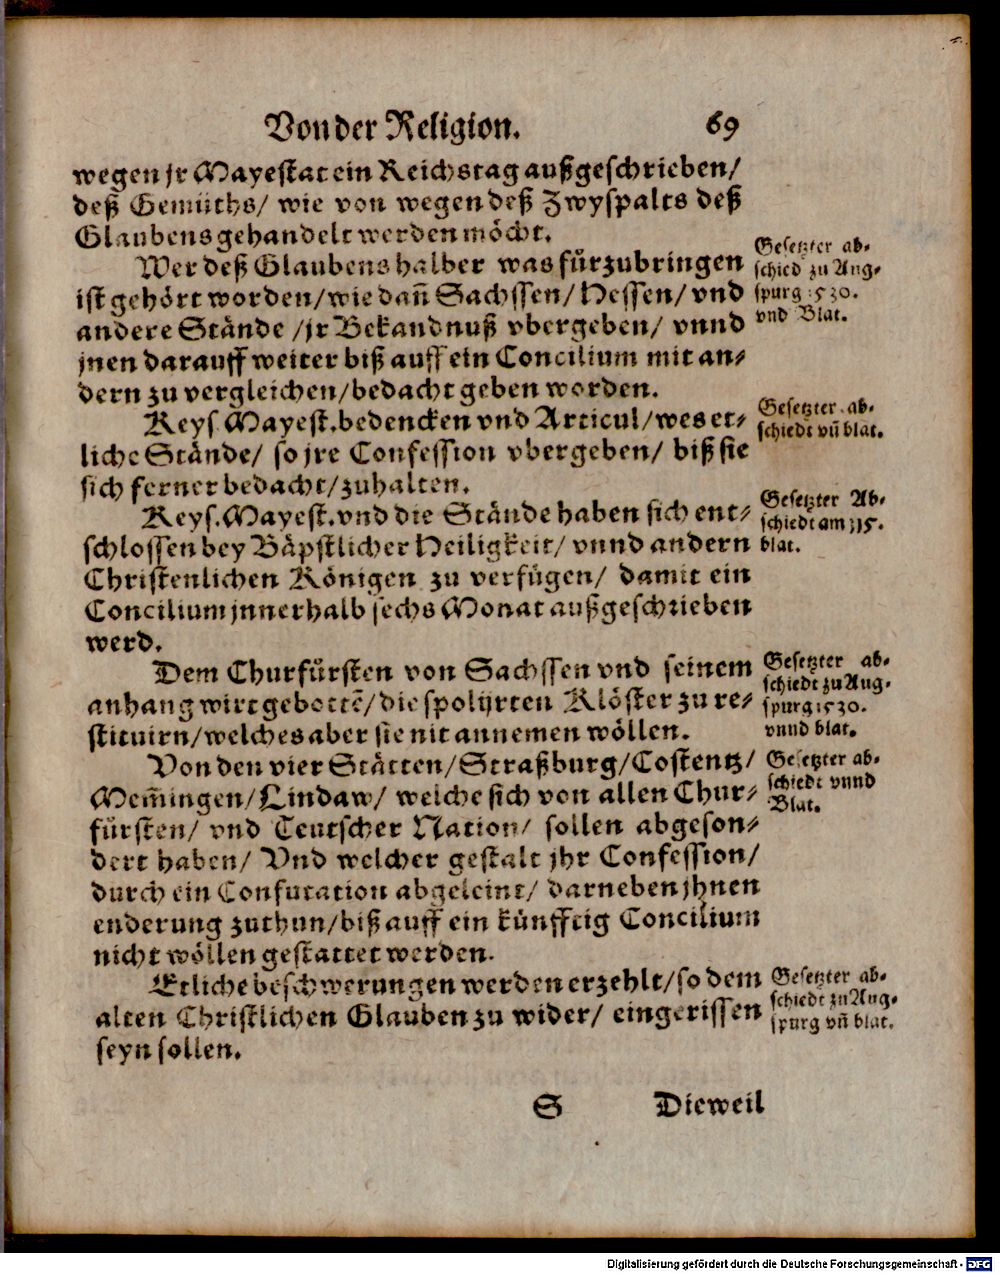 Von der Religion. 69
wegen jr Mayestat ein Reichstag außgeschrieben/
deß Gemüths/ wie von wegen deß Zwyspalts deß
Glaubens gehandelt werden möcht.
Wer deß Glaubens halber was fürzubringen
ist gehört worden/wie dañ Sachssen/Hessen/vnd
andere Stände /jr Bekandnuß vbergeben/ vnnd
jnen darauff weiter biß auff ein Concilium mit an-
dern zu vergleichen/bedacht geben worden.
Gesetzter ab-
schied zu Aug-
spurg 1530.
vnd Blat.
Keys. Mayest. bedencken vnd Articul/wes et-
liche Stände/ so jre Confession vbergeben/ biß sie
sich ferner bedacht/zuhalten.
Gesetzter ab-
schiedt vñ blat.
Keys. Mayest. vnd die Stände haben sich ent-
schlossen bey Bäpstlicher Heiligkeit/ vnnd andern
Christenlichen Königen zu verfügen/ damit ein
Concilium jnnerhalb sechs Monat außgeschrieben
werd.
Gesetzter Ab-
schiedt am 315.
blat.
Dem Churfürsten von Sachssen vnd seinem
anhang wirt gebottẽ/die spolijrten Klöster zu re-
stituirn/welches aber sie nit annemen wöllen.
Gesetzter ab-
schiedt zu Aug-
spurg 1530.
vnnd blat.
Von den vier Stätten/Straßburg/Costentz/
Mem̃ingen/Lindaw/ welche sich von allen Chur-
fürsten/ vnd Teutscher Nation/ sollen abgeson-
dert haben/ Vnd welcher gestalt jhr Confession/
durch ein Confutation abgeleint/ darneben jhnen
enderung zuthun/biß auff ein künfftig Concilium
nicht wöllen gestattet werden.
Gesetzter ab-
schiedt vnnd
Blat.
Etliche beschwerungen werden erzehlt/so dem
alten Christlichen Glauben zu wider/ eingerissen
seyn sollen.
Gesetzter ab-
schiedt zu Aug-
spurg vñ blat.
S Dieweil
Digitalisierung gefördert durch die Deutsche Forschungsgemeinschaft - DFG